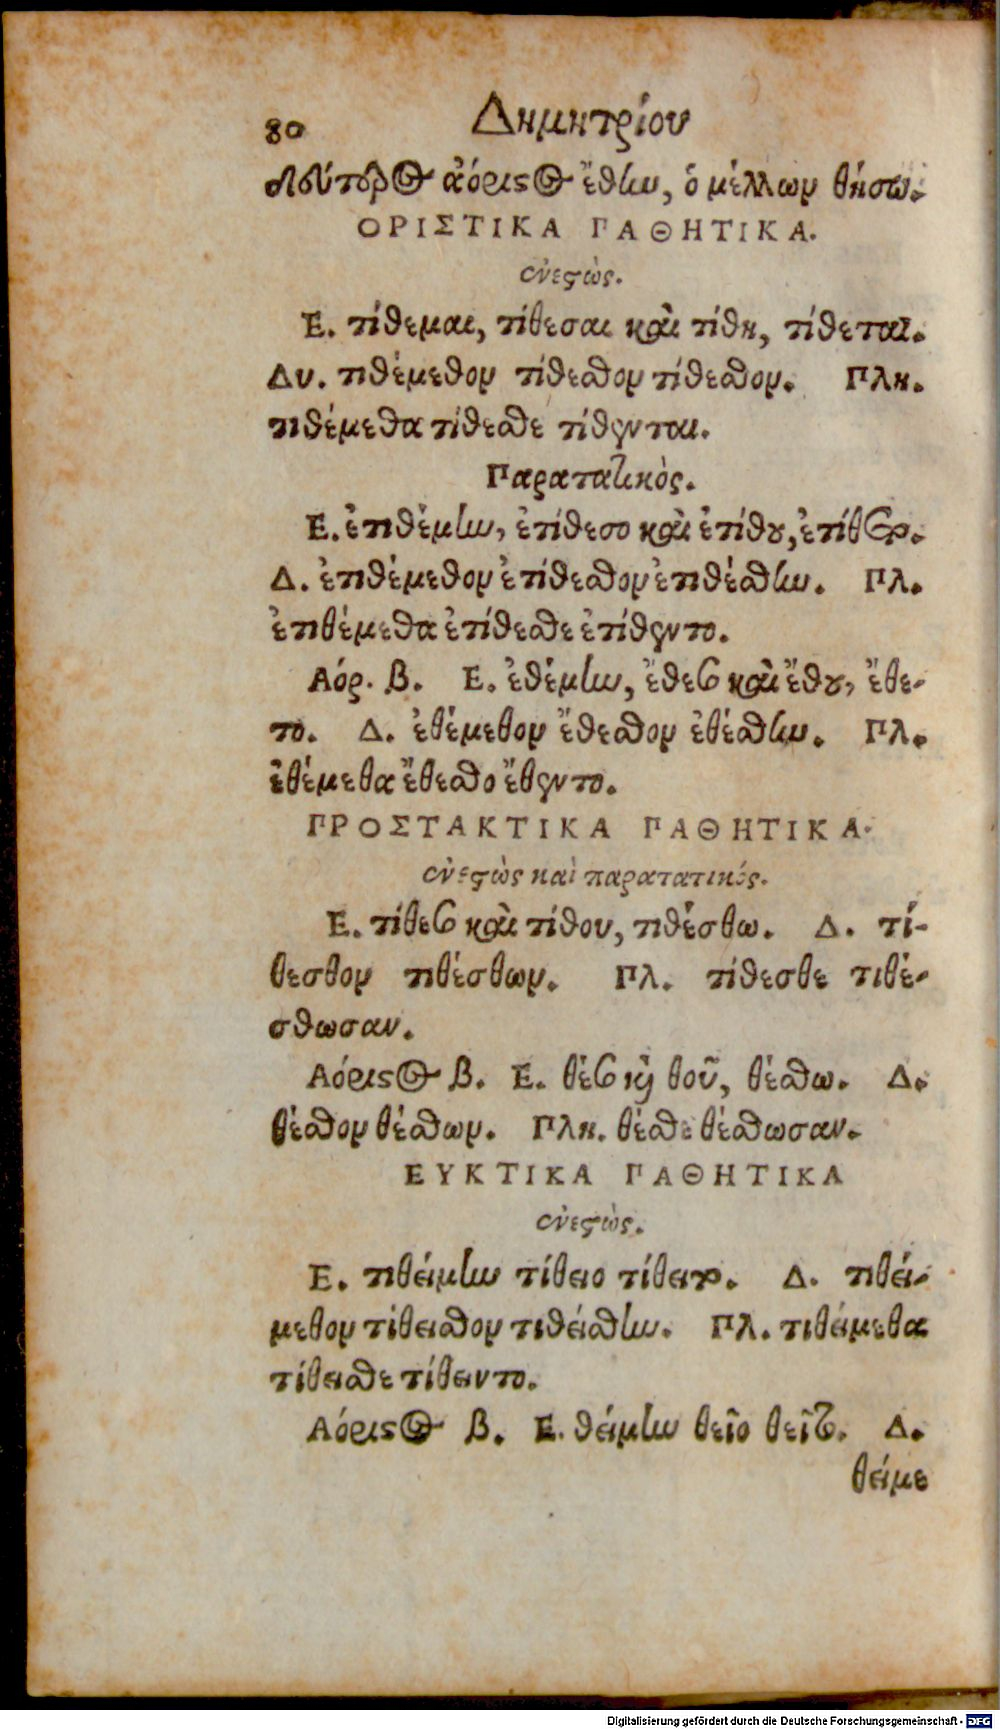 80 Δημητρίου
δεύτερος ἀόριστος ἔθην, ὁ μέλλων θήσω.
ΟΡΙΣΤΙΚΑ ΠΑΘΗΤΙΚΑ.
ἐνεστώς.
Ε. τίθεμαι, τίθεσαι καὶ τίθη, τίθεται.
Δυ. τιθέμεθον τίθεσθον τίθεσθον. Πλη.
τιθέμεθα τίθεσθε τίθενται.
Παρατατικὸς.
Ε. ἐτιθέμην, ἐτίθεσο καὶ ἐτίθου, ἐτίθετο.
Δ. ἐτιθέμεθον ἐτίθεσθον ἐτιθέσθην. Πλ.
ἐτιθέμεθα ἐτίθεσθε ἐτίθεντο.
Αόρ. β. Ε. ἐθέμην, ἔθεσο καὶ ἔθου, ἔθε-
το. Δ. ἐθέμεθον ἔθεσθον ἐθέσθην. Πλ.
ἐθέμεθα ἔθεσθο ἔθεντο.
ΠΡΟΣΤΑΚΤΙΚΑ ΠΑΘΗΤΙΚΑ.
ἐνεστὼς καὶ παρατατικός.
Ε. τίθεσο καὶ τίθου, τιθέσθω. Δ. τί-
θεσθον τιθέσθων. Πλ. τίθεσθε τιθέ-
σθωσαν.
Αόριστος β. Ε. θέσο καὶ θοῦ, θέσθω. Δ.
θέσθον θέσθων. Πλη. θέσθε θέσθωσαν.
ΕΥΚΤΙΚΑ ΠΑΘΗΤΙΚΑ
ἐνεστὼς.
Ε. τιθείμην τίθειο τίθειτο. Δ. τιθεί-
μεθον τίθεισθον τιθείσθην. Πλ. τιθείμεθα
τίθεισθε τίθειντο.
Αόριστος β. Ε. θείμην θεῖο θεῖτο. Δ.
θείμε
Digitalisierung gefördert durch die Deutsche Forschungsgemeinschaft - DFG